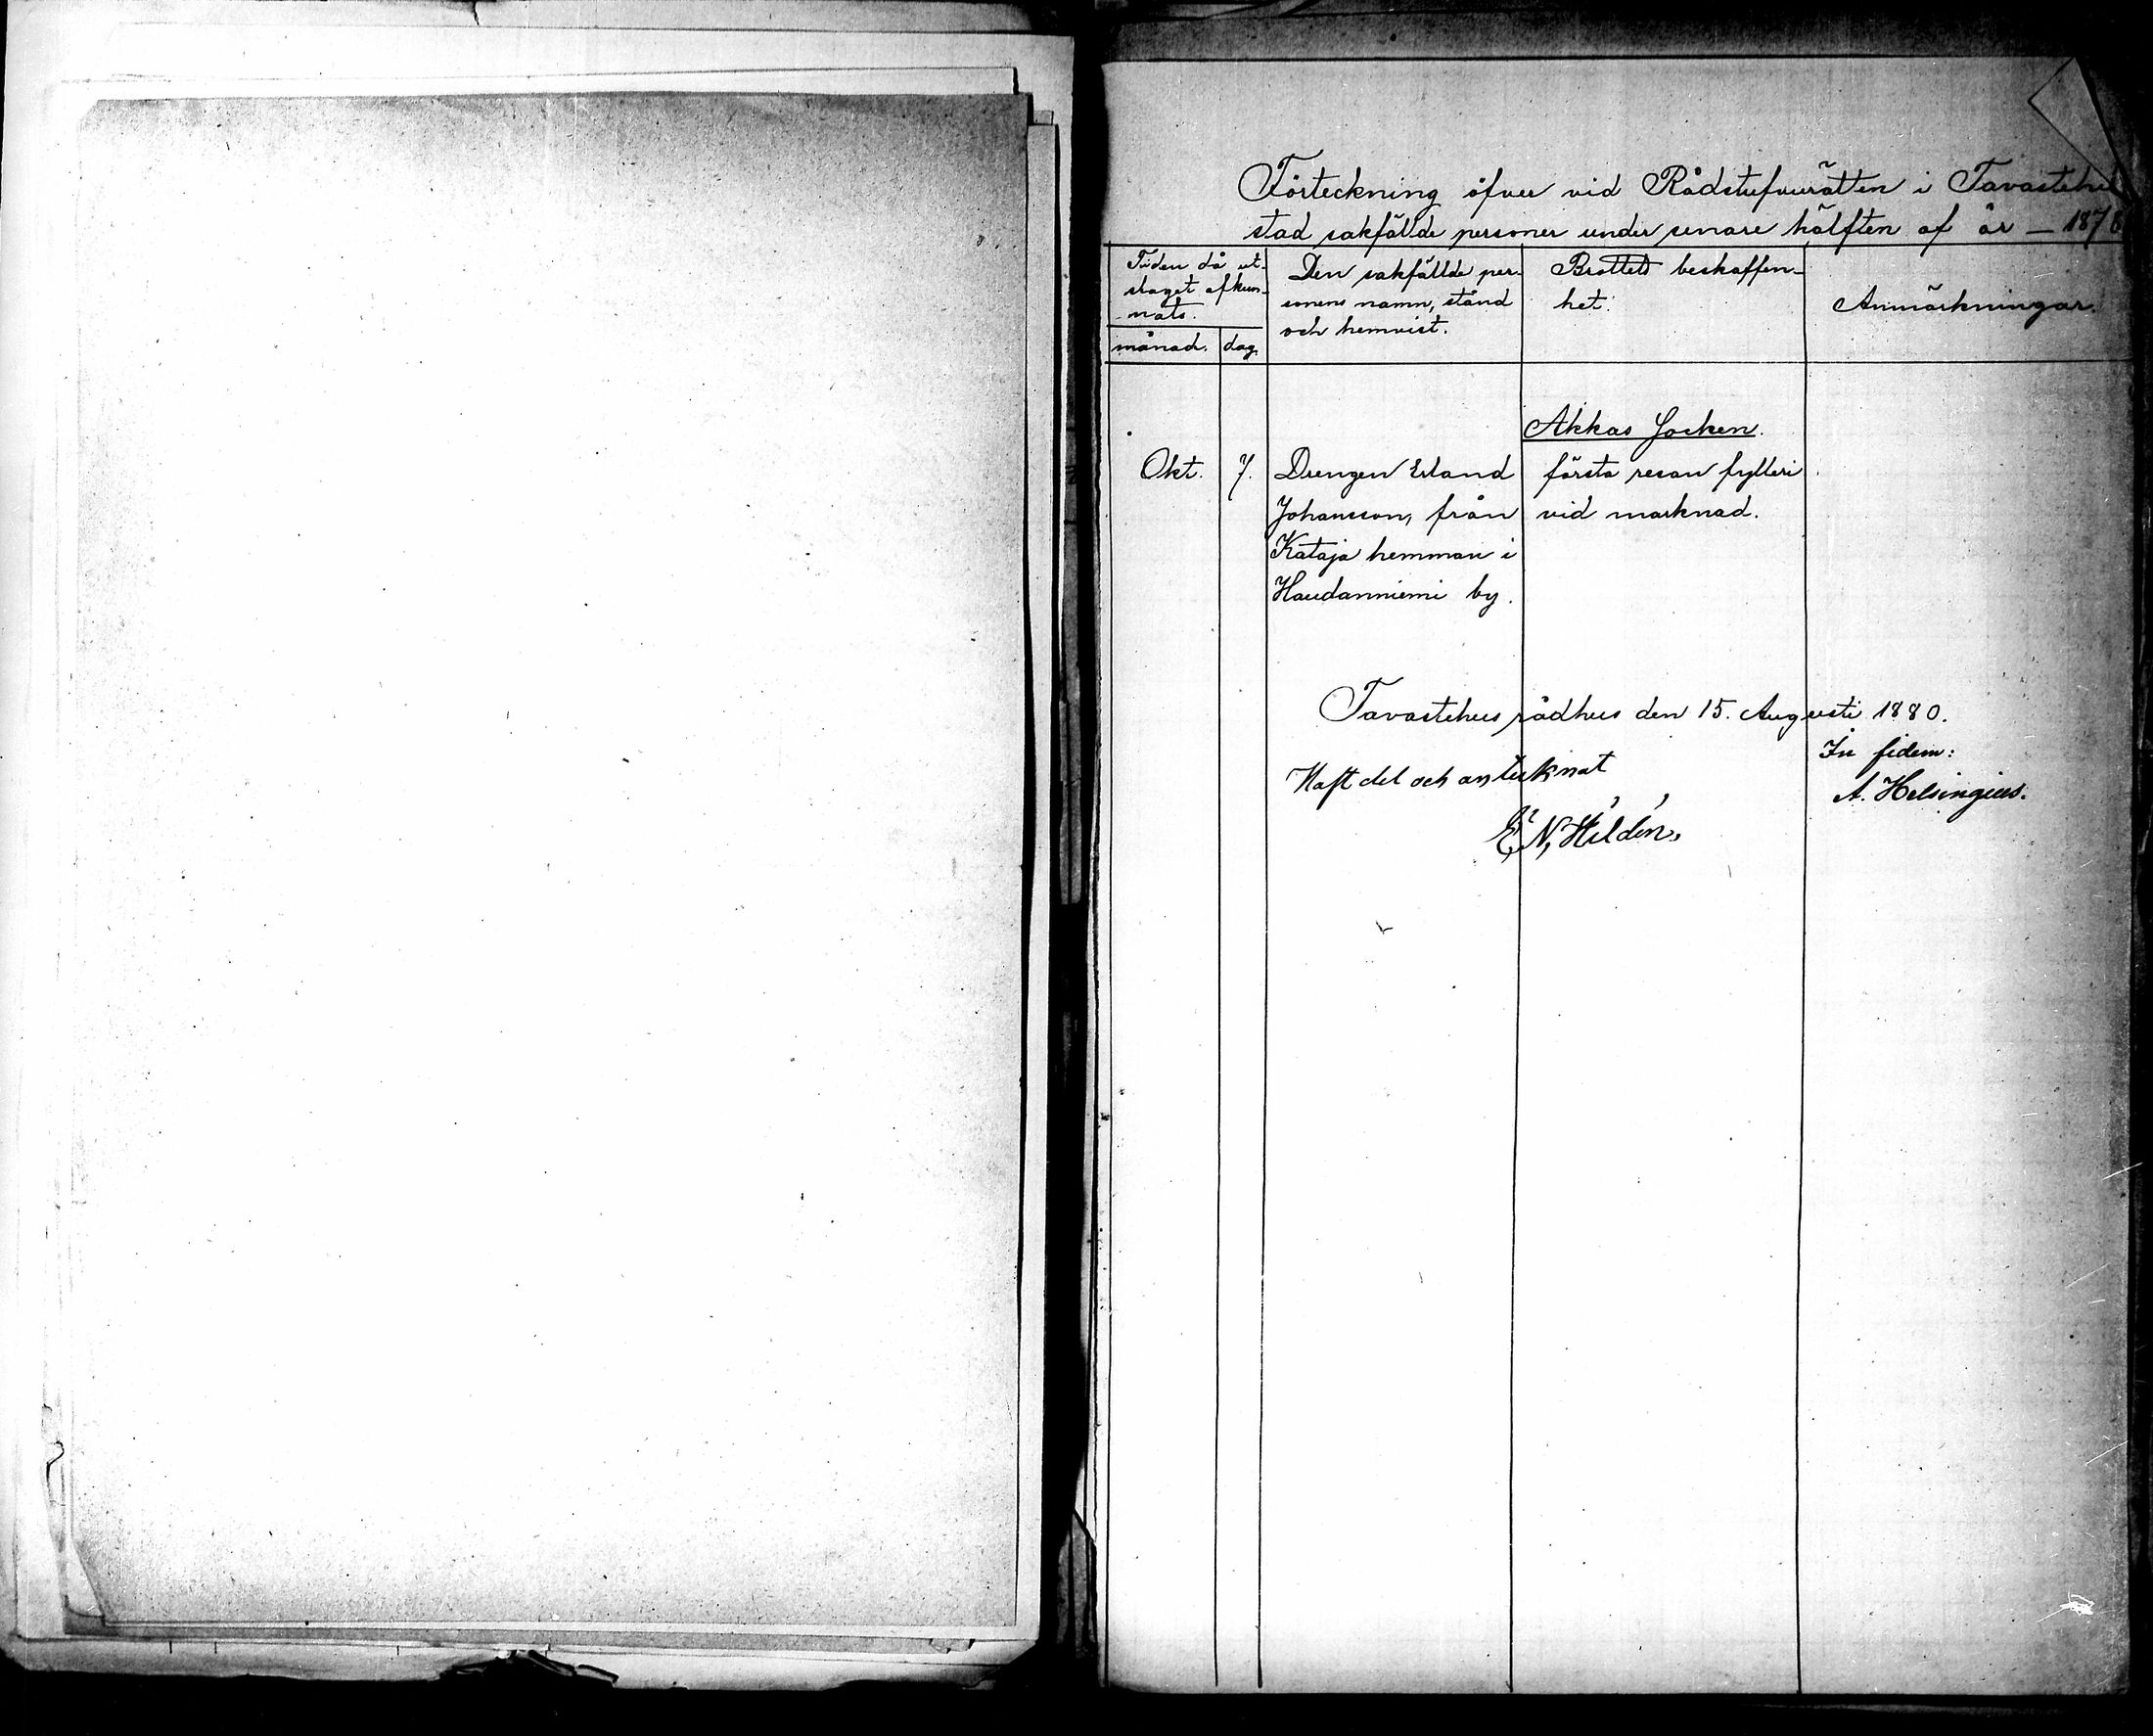 Förteckning öfver vid Rådstufvurätten i Tavastehus
stad sakfälde personer under senare hälften af år — 1878
Tiden då ut-
slaget afkun-
nats.
månad. dag.
Den sakfällde per-
sonens namn, stånd
och hemvist.
Brottets beskaffen-
het.
Anmärkningar.
Akkas Socken.
Okt. 7. Drengen Erland första resan fylleri
Johansson, från vid marknad.
Kataja hemman i
Haudanniemi by.
Tavastehus rådhus den 15. Augusti 1880.
In fidem:
A. Helsingius.
Haft del och antecknat
E. N. Hildén.